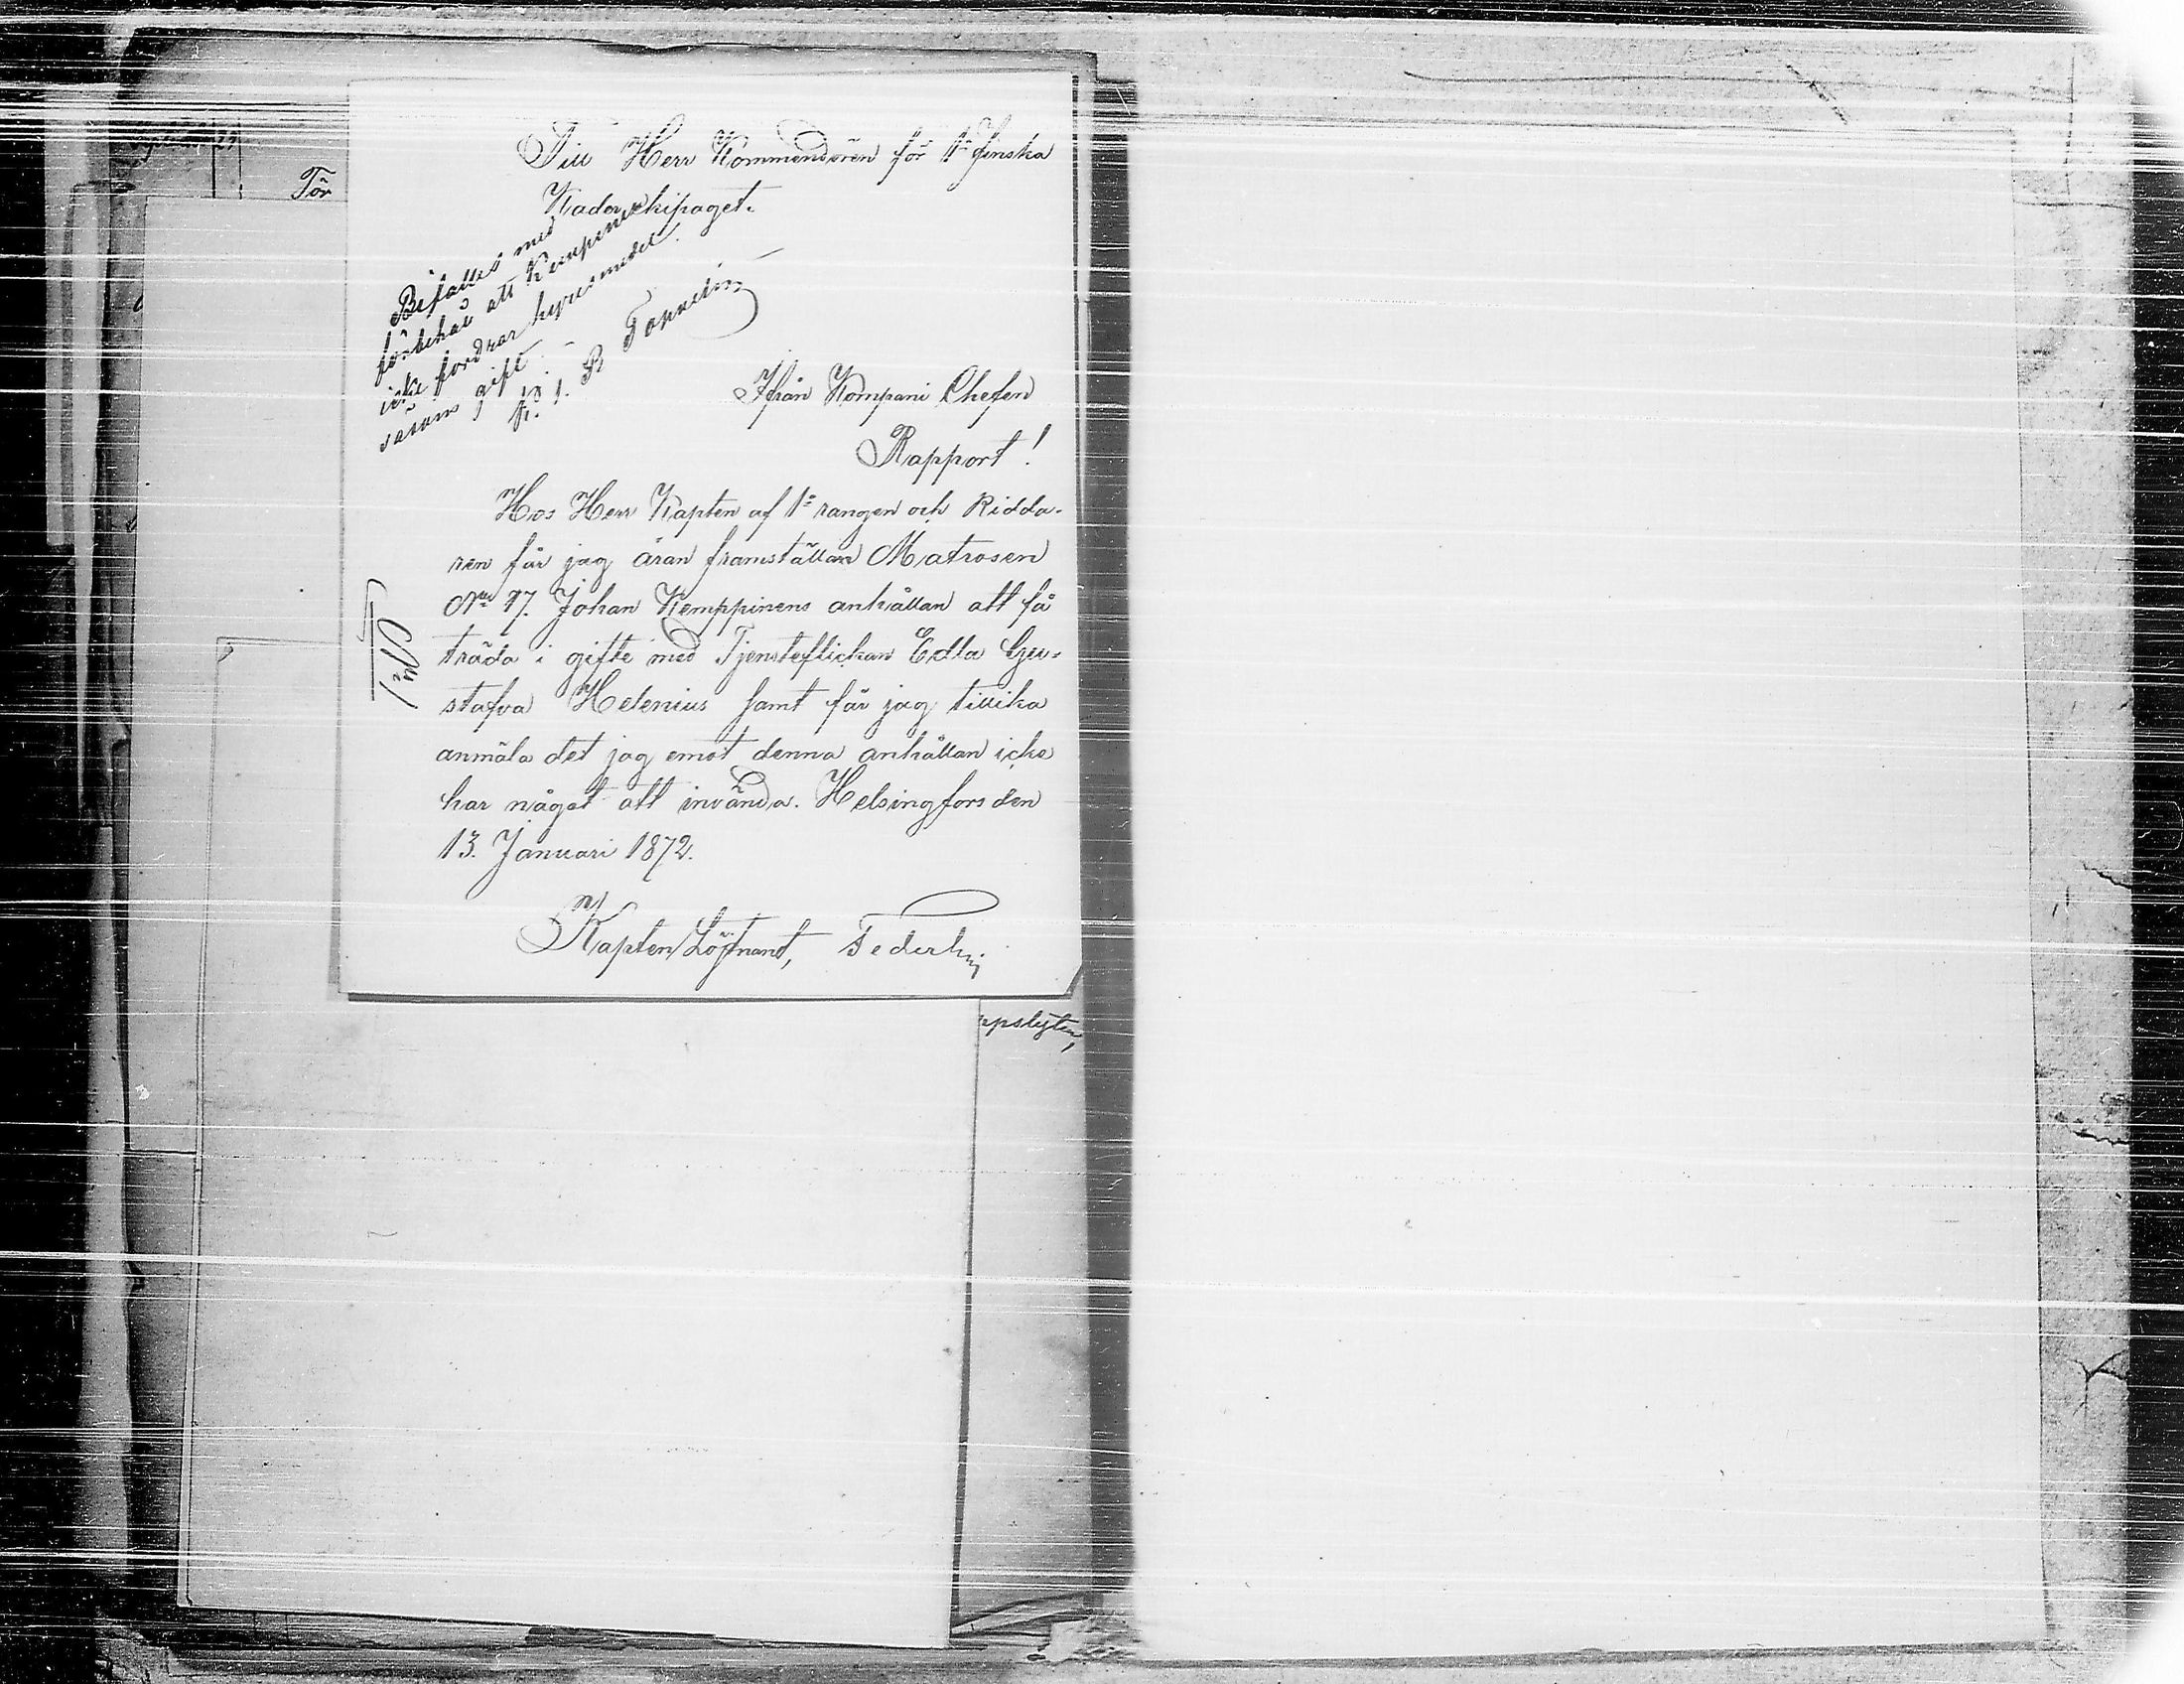 Till Herr Kommendören för 1a Finska
Kader ekipaget.
Befalles med
förbehåll att Kempinen
icke fordrar hyresmedel
såsom gift.
K. 1. R
Från Kompani Chefen
Rapport!
Hos Herr Kapten af 1a rangen och Ridda-
ren får jag äran framställa Matrosen
No 97. Johan Kemppinens anhållan att få
träda i gifte med Tjensteflickan Edla Gu-
stafva Helenius samt får jag tillika
anmäla det jag emot denna anhållan icke
har något att invända. Helsingfors den
13. Januari 1872.
Kapten Löjtnant,
No 1
För